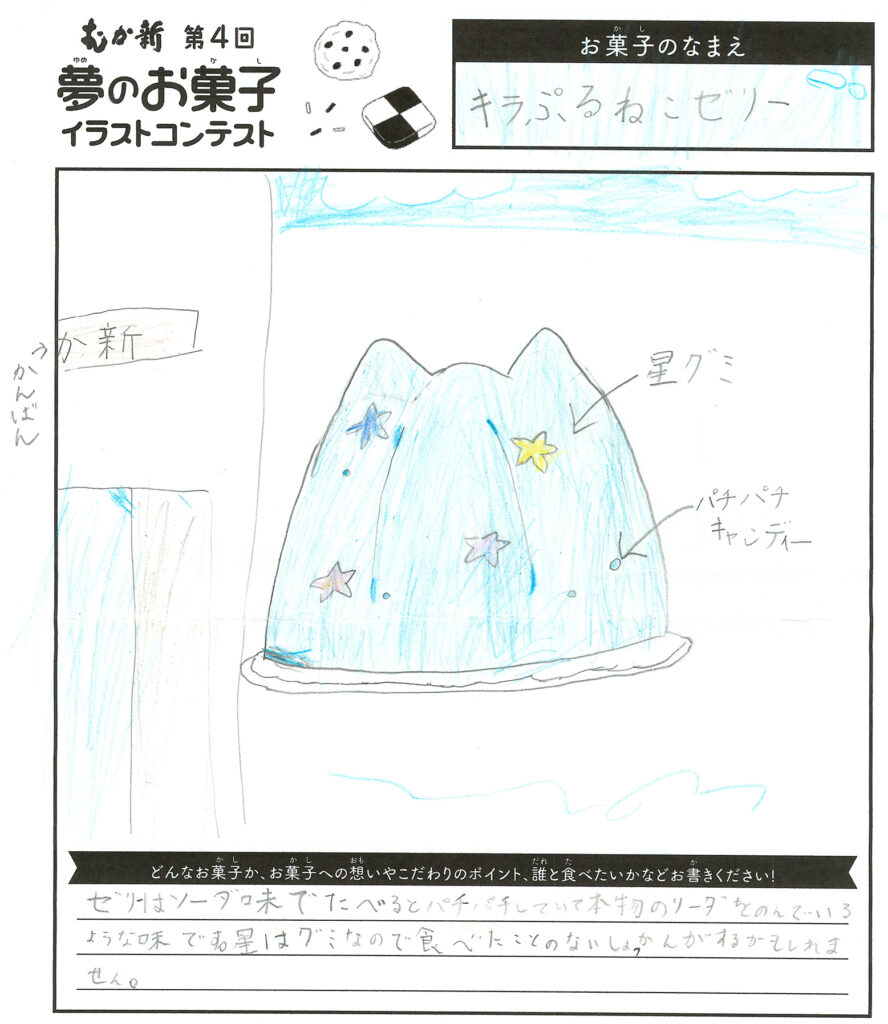 むか新 第4回
夢のお菓子
イラストコンテスト
お菓子のなまえ
キラぷるねこゼリー
か新
かんばん
星グミ
パチパチ
キャンディー
どんなお菓子か、お菓子への想いやこだわりのポイント、誰と食べたいかなどお書きください!
ゼリーはソーダ味でたべるとパチパチしていて本物のソーダをのんでいる
ような味です。星はグミなので食べたことのないしょっかんがするかもしれま
せん。